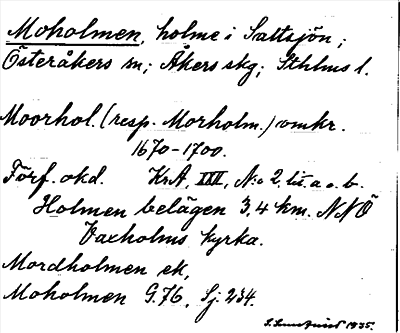 Moholmen, holme i Saltsjön;
Österåkers sn; Åkers skg; Sthlms l.
Moorhol. (resp. Morholm.) omkr.
1670-1700.
Förf. okd. KrA, XIII, N:o 2. lit. a o. b.
Holmen belägen 3,4 km. NNÖ
Vaxholms kyrka.
Mordholmen ek,
Moholmen G.76, Sj. 234.
1935.